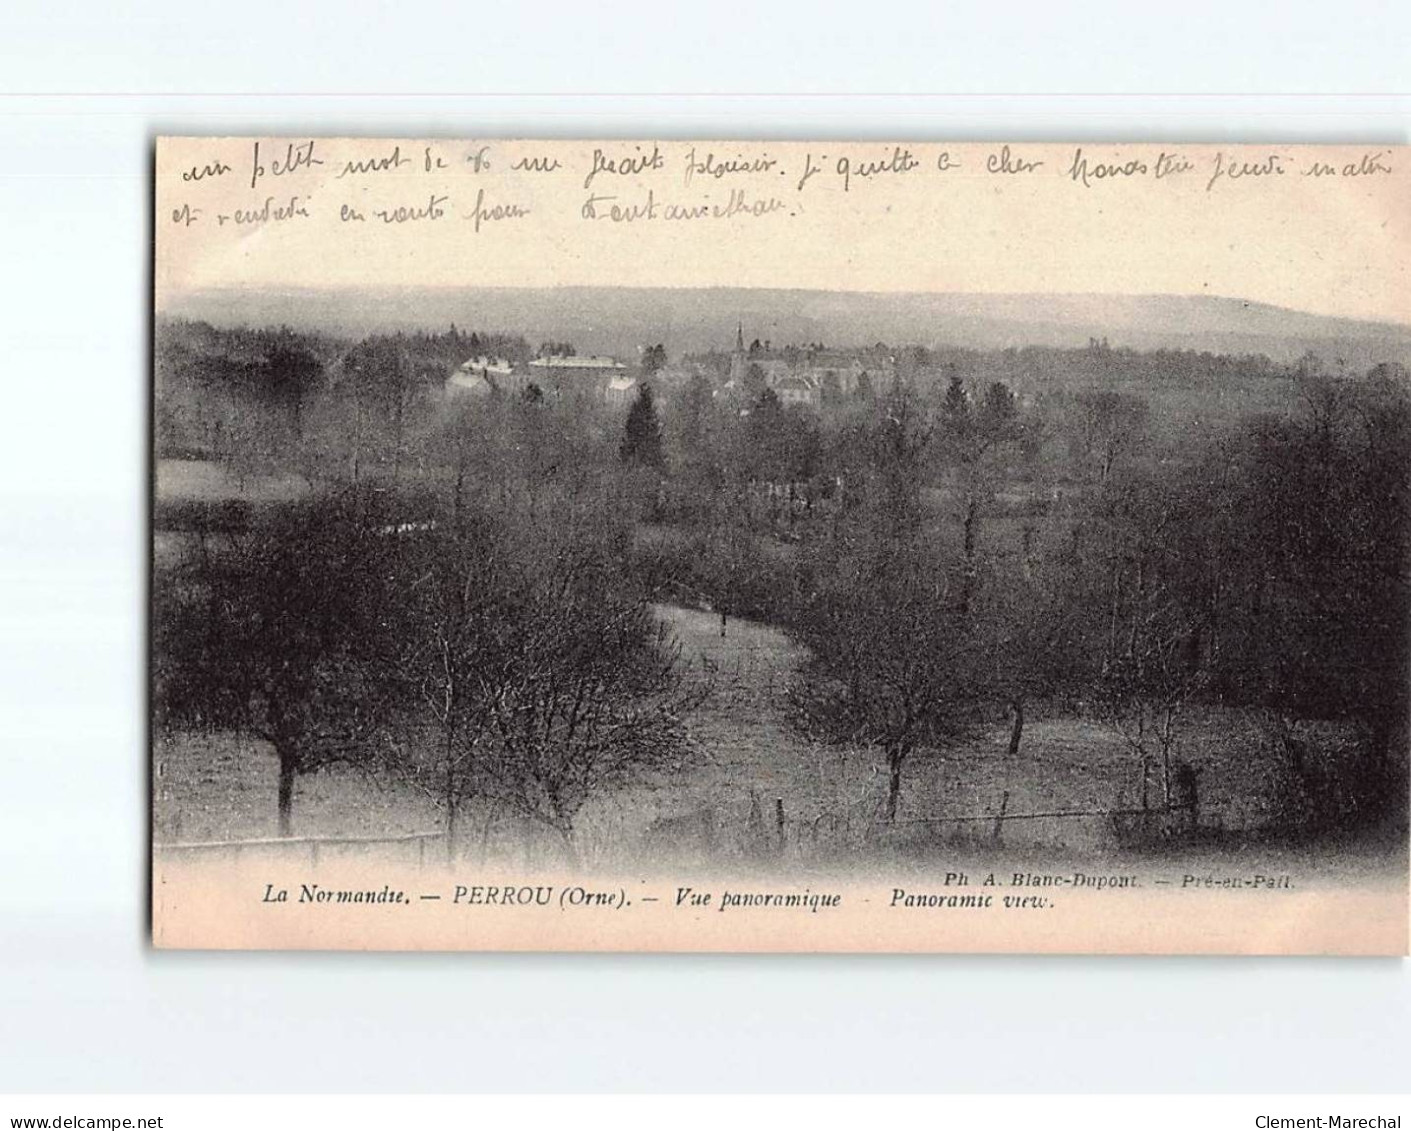 un petit mot de vs me ferait plaisir. Je quitte ce cher Monastère Jeudi matin
et vendredi en route pour
Ph A. Blanc-Dupont. — Pré-en-Pail.
La Normandie. — PERROU (Orne). — Vue panoramique - Panoramic view.
www.delcampe.net
Clement-Marechal